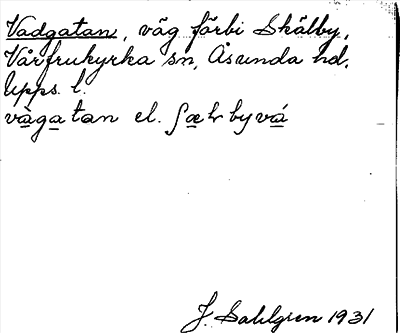 Vadgatan, väg förbi Skälby,
Vårfrukyrka sn, Åsunda hd,
Upps. l.
vàgatan el. ʃæɫbyvá
J. Sahlgren 1931